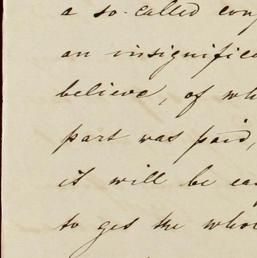 a so-called conf
an insignifica
believe, of wh
part was paid,
it will be ea
to get the whol